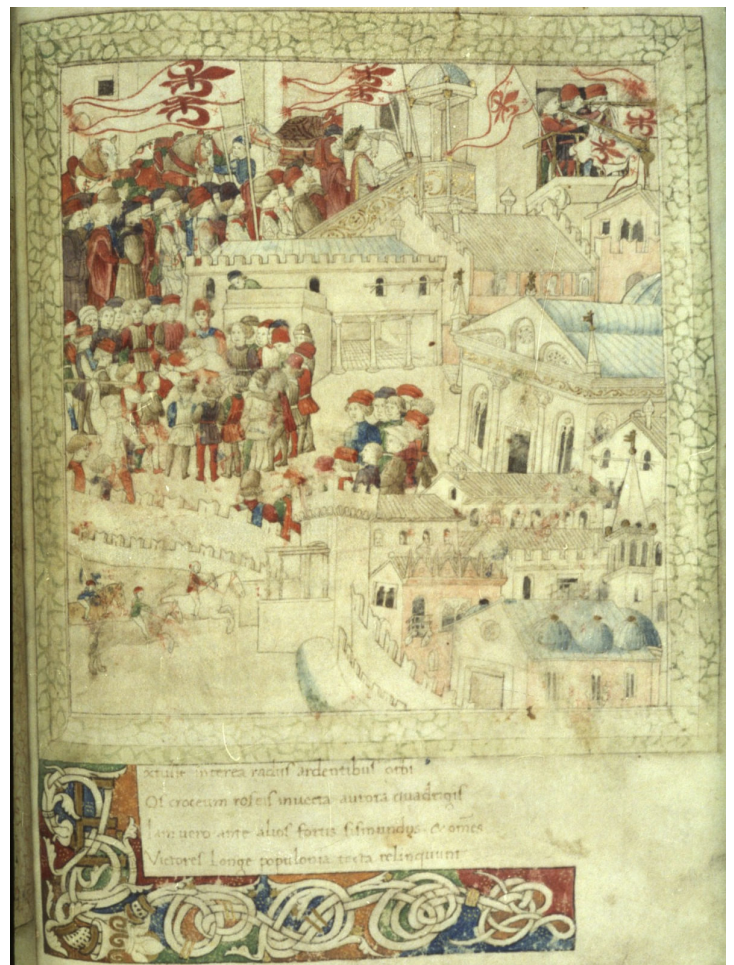 Extulit interea radiis ardentibus orbi
Os croceum roseis invecta aurora quadrigis
Iam vero ante alios fortis sismundus & omēs
Victores Longe populonia tecta relinquunt